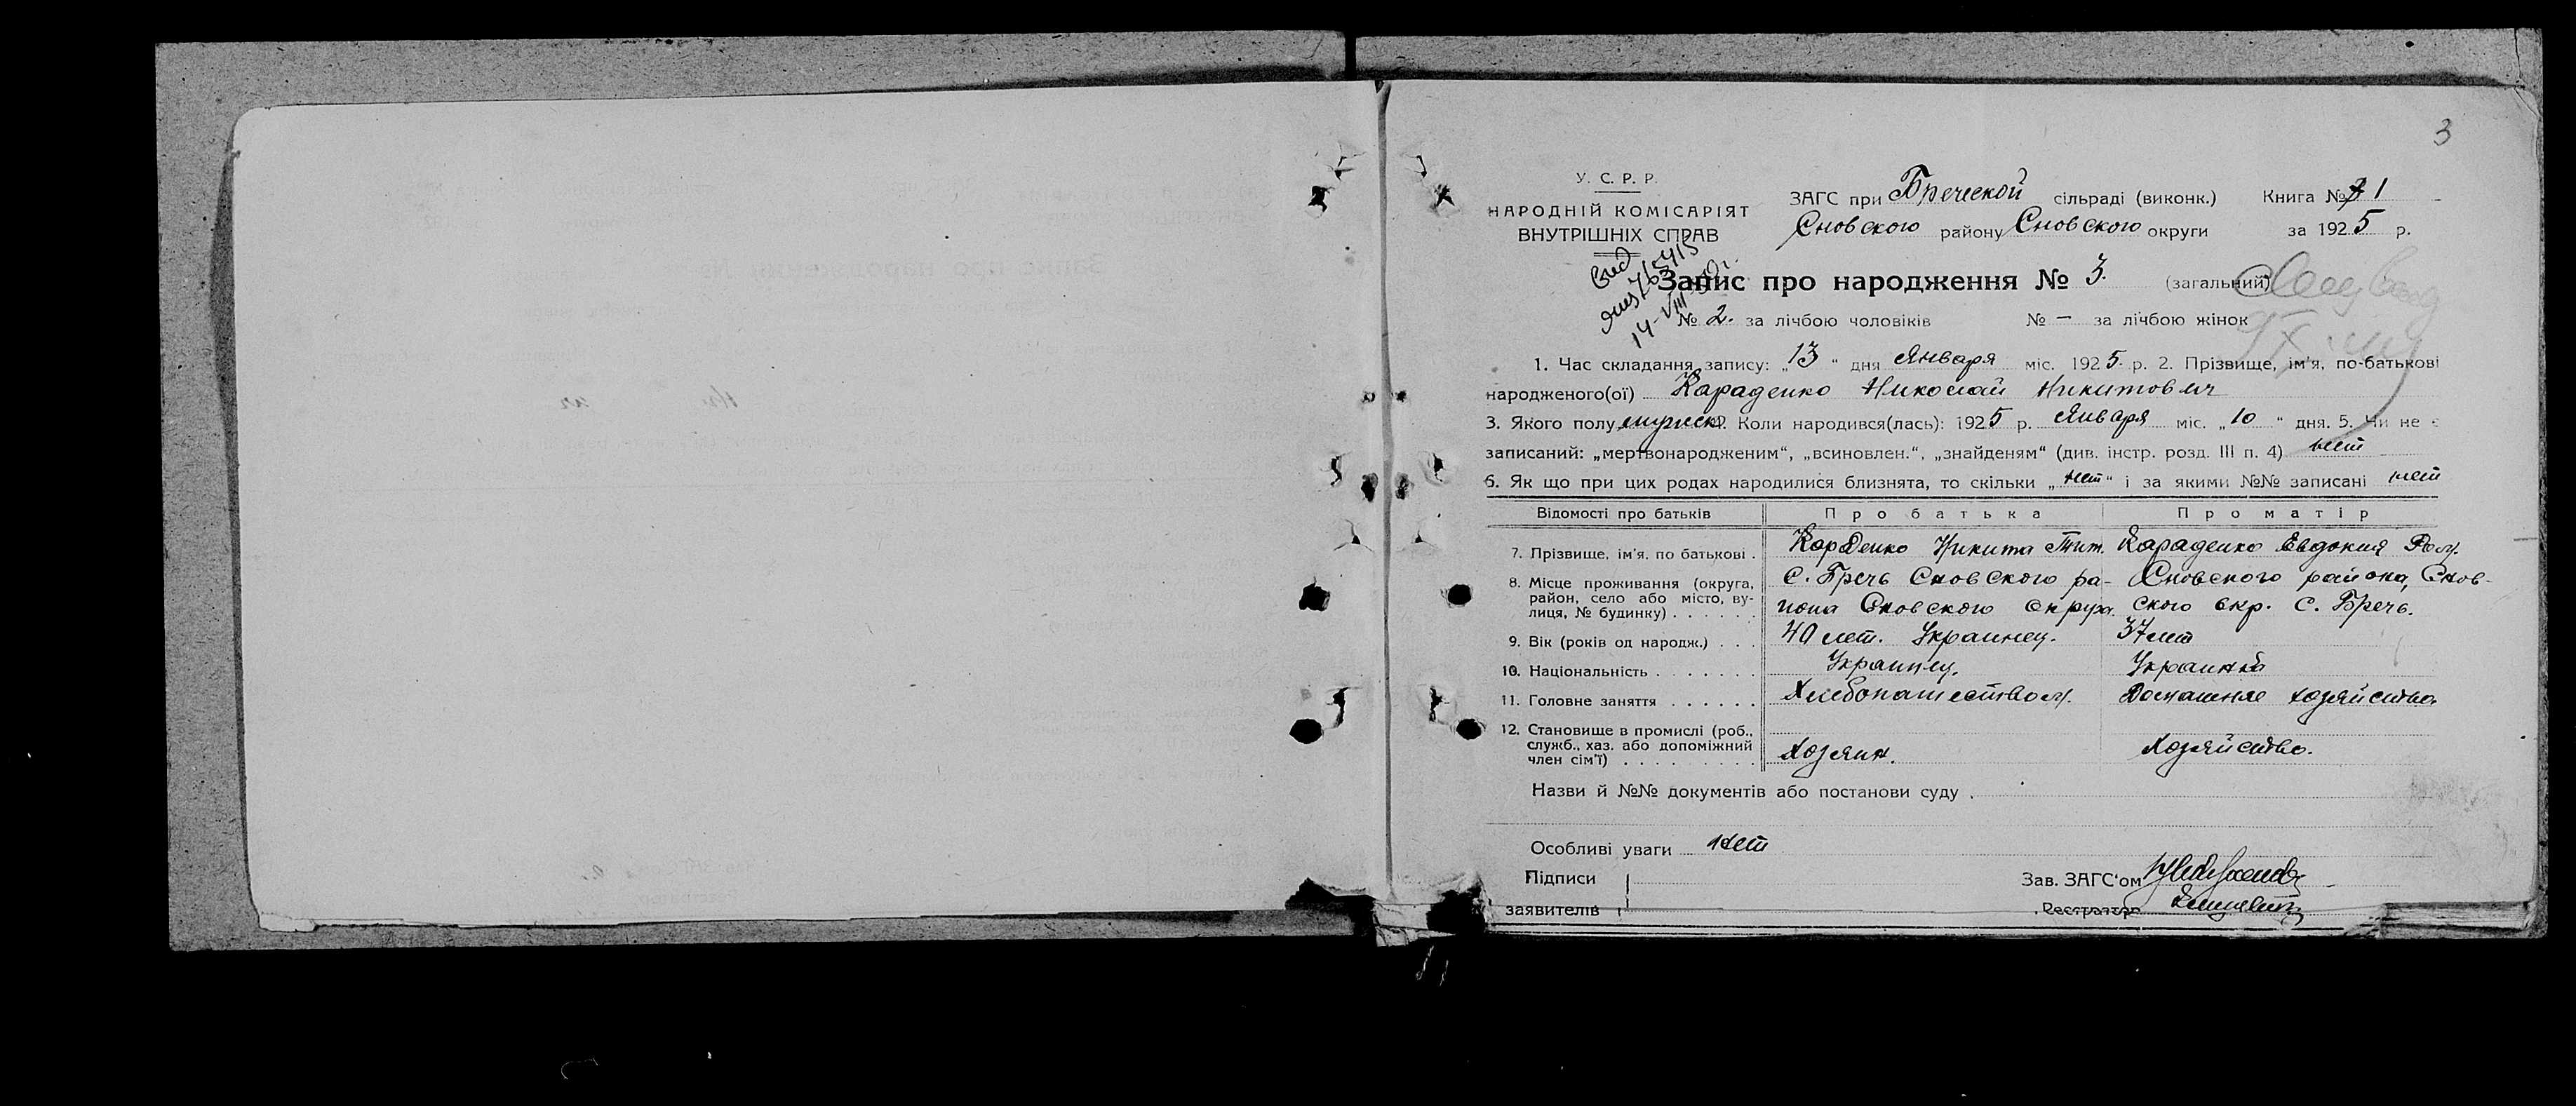 3
У. С. Р. Р.
НАРОДНІЙ КОМІСАРІЯТ
ВНУТРІШНІХ СПРАВ
ЗАГС при Бречской сільраді (виконк.) Книга № 1
Сновского району Сновского округи за 1925 р.
14-VIII
Запис про народження № 3. (загальний)
№ 2. за лічбою чоловіків № — за лічбою жінок
1. Час складання запису: „13“ дня Января міс. 1925 р. 2. Прізвище, ім'я, по-батькові
народженого(ої) Караденко Николай Никитович
3. Якого полу мужск. 4. Коли народився(лась): 1925 р. Января міс. „10“ дня. 5. Чи не є
записаний: „мертвонародженим“, „всиновлен.“, „знайденям“ (див. інстр. розд. III п. 4) нет
6. Як що при цих родах народилися близнята, то скільки „нет“ і за якими №№ записані нет
Відомості про батьків Про батька Про матір
7. Прізвище, ім'я, по батькові . Карденко Никита Тит. Караденко Евдокия Ром.
8. Місце проживання (округа, район, село або місто, вулиця, № будинку) . . . . . .
С. Бречь Сновского ра-
иона Сновского округ.
Сновского района, Снов-
ского окр. С. Бречь.
9. Вік (років од народж.) . . . 40 лет. Украинец. 37 лет
10. Національність . . . . . . . Украинец. Украинка
11. Головне заняття . . . . . . Хлебопашеством. Домашнее хозяйство
12. Становище в промислі (роб., служб., хаз. або допоміжний член сім'ї) . . . . . . . . . Хозяин. Хозяйство.
Назви й №№ документів або постанови суду .
Особливі уваги нет
Підписи
заявителів
Зав. ЗАГС'ом
Реєстратор